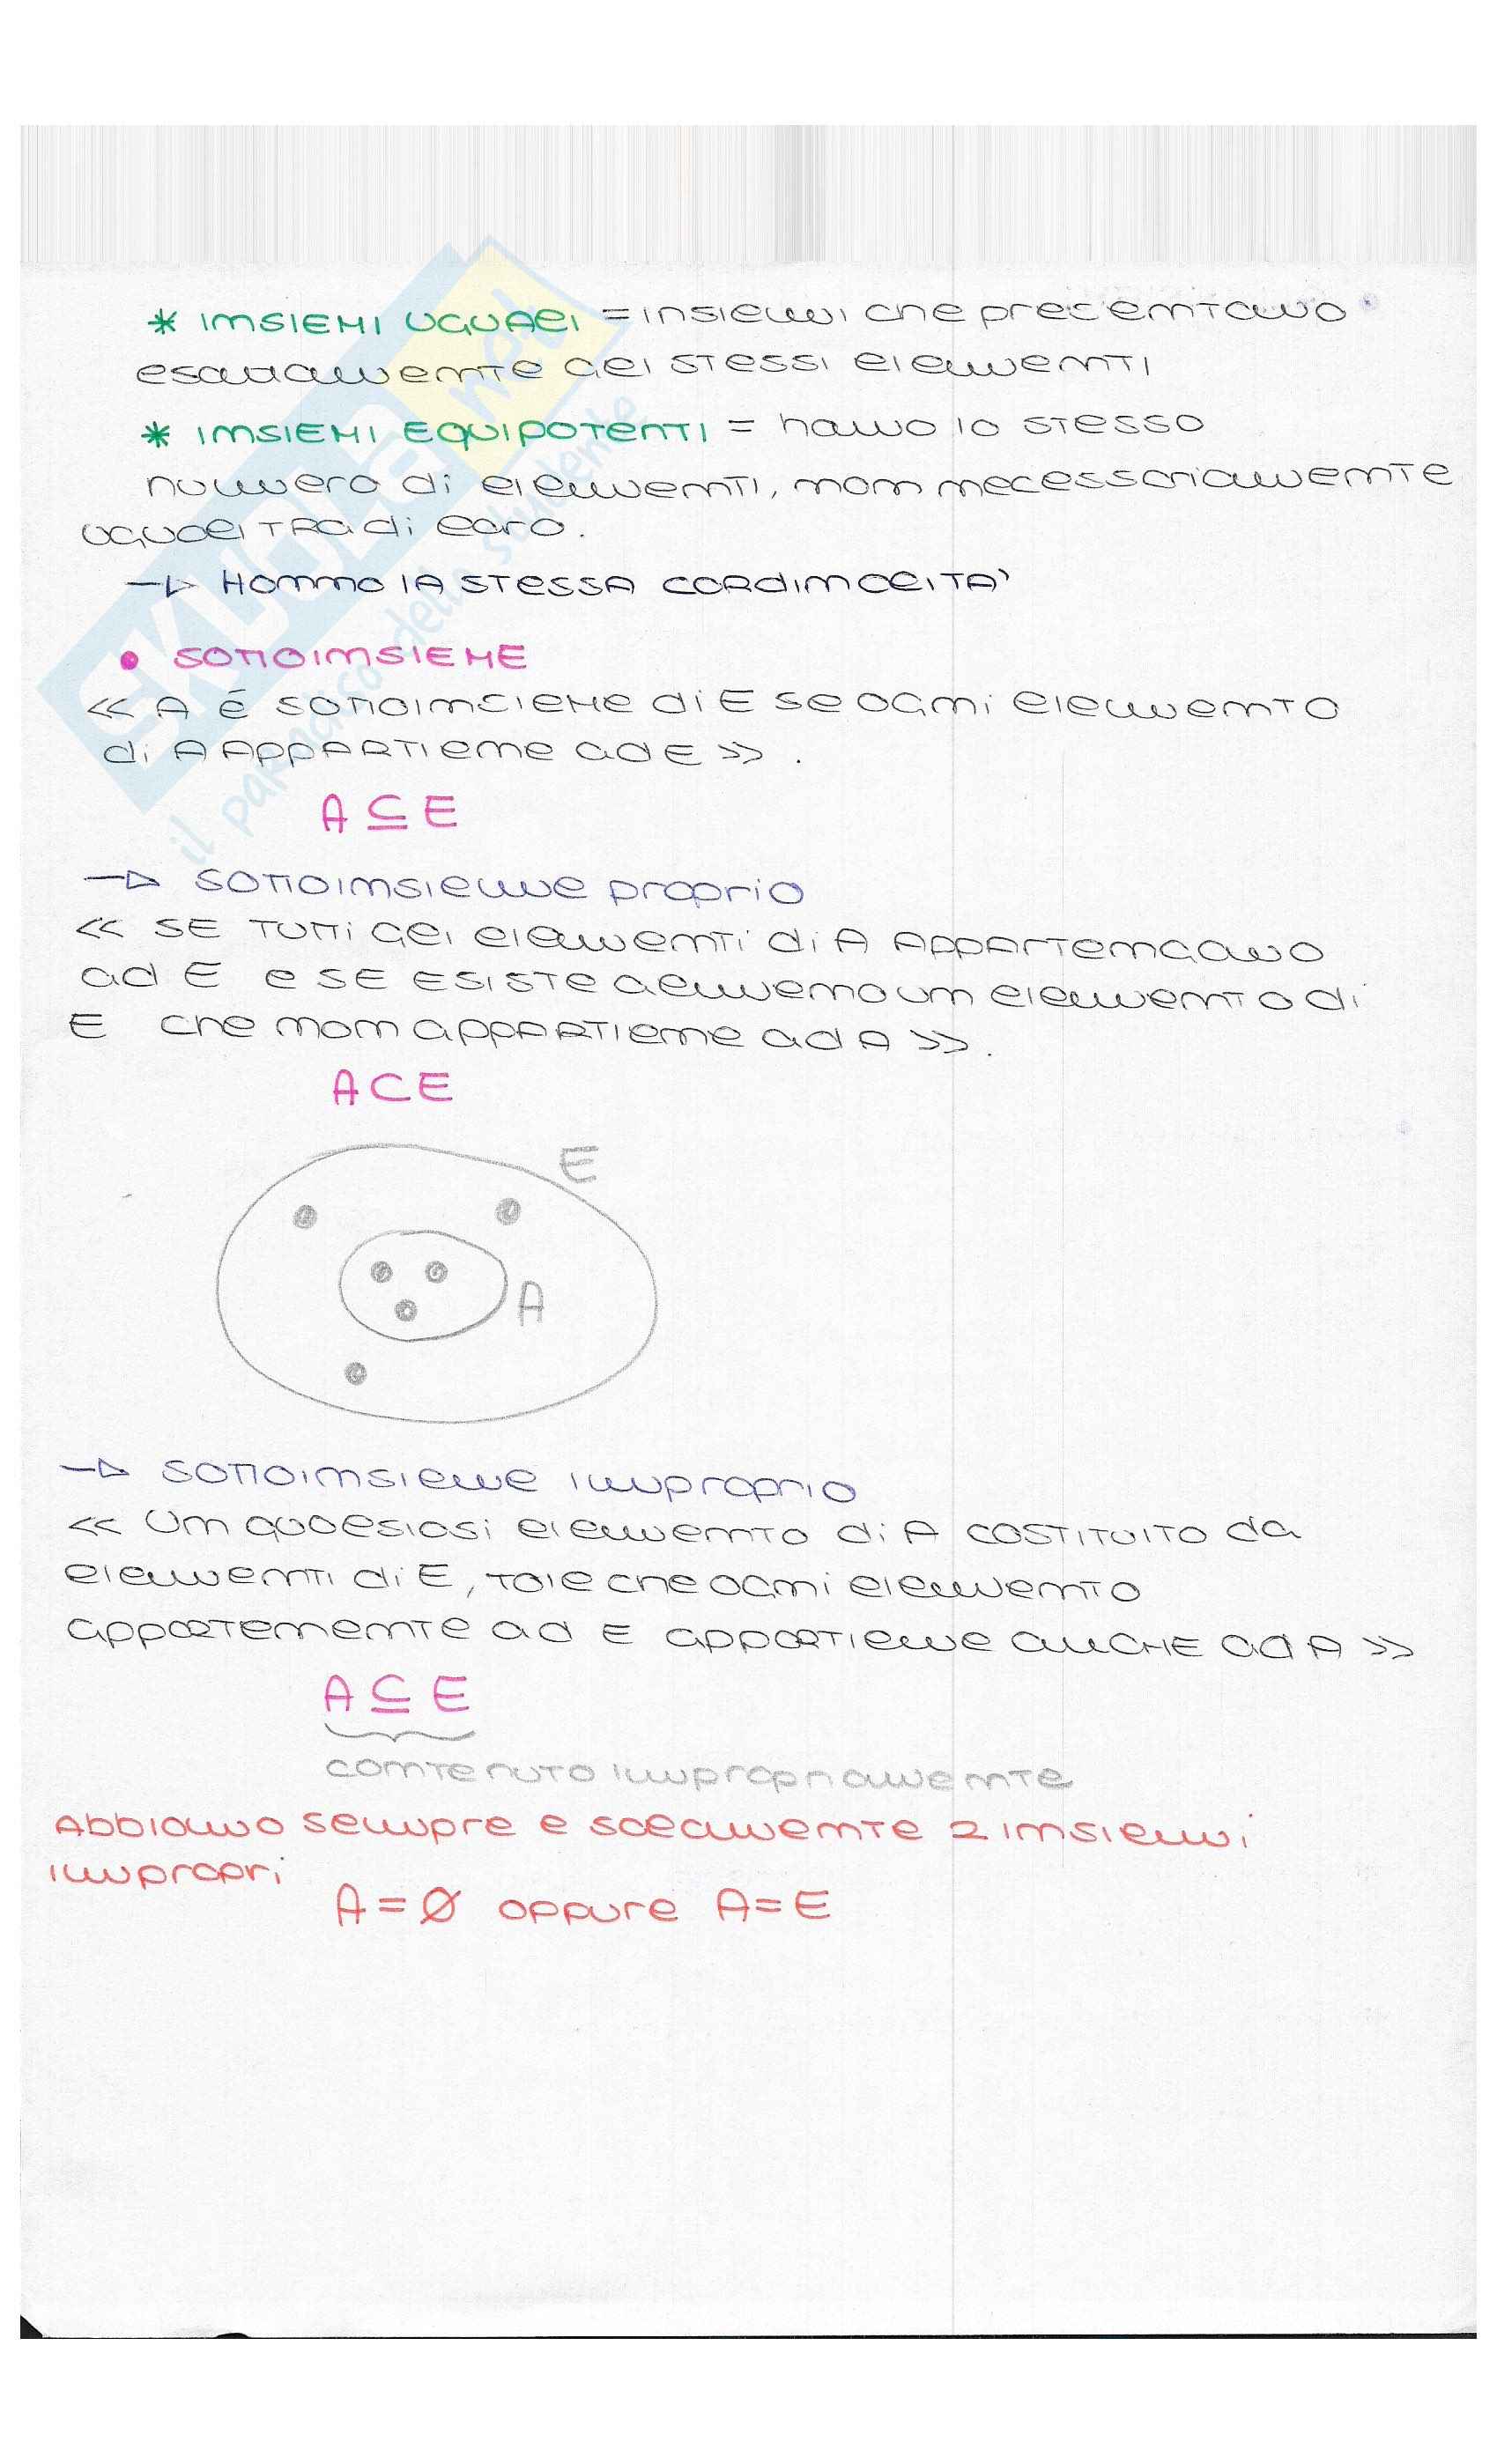 * INSIEMI UGUALI = insiemi che presentano
esattamente gli stessi elementi
* INSIEMI EQUIPOTENTI = hanno lo stesso
numero di elementi, non necessariamente
uguali tra di loro.
→ Hanno la stessa cardinalità
• SOTTOINSIEME
<< A é sottoinsieme di E se ogni elemento
di A appartiene ad E >>.
A ⊆ E
→ sottoinsieme proprio
<< Se tutti gli elementi di A appartengano
ad E e se esiste almeno un elemento di
E che non appartiene ad A >>.
A ⊂ E
E
A
→ sottoinsieme improprio
<< Un qualsiasi elemento di A costituito da
elementi di E, tale che ogni elemento
appartenente ad E appartiene anche ad A >>
A ⊆ E
contenuto impropriamente
Abbiamo sempre e solamente 2 insiemi
impropri
A = Ø oppure A = E
skuola.net
il paradiso dello studente